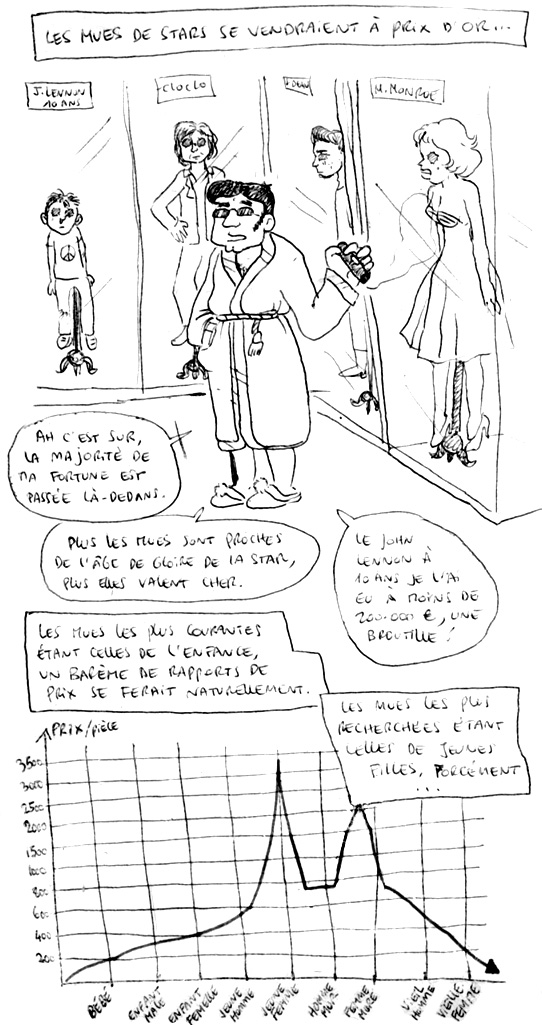 LES MUES DE STARS SE VENDRAIENT À PRIX D'OR...
J. LENNON
10 ANS
CLOCLO
J. DEAN
M. MONROE
AH C'EST SUR,
LA MAJORITÉ DE
MA FORTUNE EST
PASSÉE LÀ-DEDANS.
PLUS LES MUES SONT PROCHES
DE L'ÂGE DE GLOIRE DE LA STAR,
PLUS ELLES VALENT CHER.
LE JOHN
LENNON À
10 ANS JE L'AI
EU À MOINS DE
200.000 €, UNE
BROUTILLE !
LES MUES LES PLUS COURANTES
ÉTANT CELLES DE L'ENFANCE,
UN BARÈME DE RAPPORTS DE
PRIX SE FERAIT NATURELLEMENT.
LES MUES LES PLUS
RECHERCHÉES ÉTANT
CELLES DE JEUNES
FILLES, FORCÉMENT
...
PRIX/PIÈCE
3500
3000
2500
2000
1500
1000
800
600
400
200
BÉBÉ
ENFANT
MALE
ENFANT
FEMELLE
JEUNE
HOMME
JEUNE
FEMME
HOMME
MUR
FEMME
MURE
VIEIL
HOMME
VIEILLE
FEMME